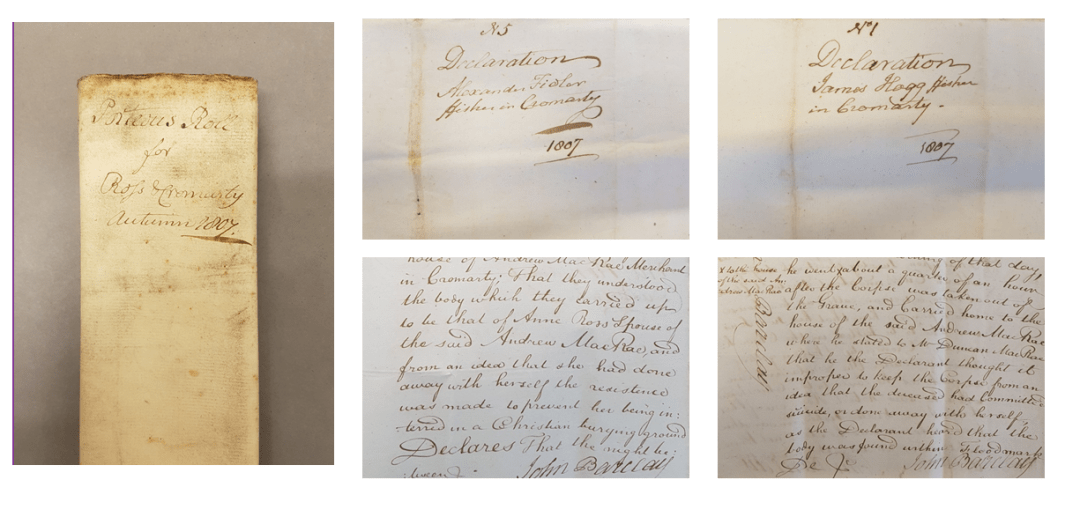 Porteous Roll
for
Ross & Cromarty
Autumn 1807.
N 5
Declaration
Alexander Fidler
ffisher in Cromarty
1807
Nº 1
Declaration
James Hogg ffisher
in Cromarty.
1807
house of Andrew Mac Rae Merchand
in Cromarty; That they understood
the body which they carried up
to be that of Anne Ross Spouse of
the said Andrew MacRae, and
from an idea that she had done
away with herself the resistence
was made to prevent her being in:
:terred in a Christian burying ground
Declares That the night be:
:tween
John Barclay
of that day
he went about a quarter of an hour
after the Corpse was taken out of
the Grave, and Carried home to the
house of the said Andrew Mac Rae
where he stated to Mr Duncan MacRae
that he the Declarant thought it
improper to keep the Corpse from an
idea that the deceased had Committed
suicide, or done away with herself,
as the Declarant heard that the
body was found within Floodmark
De
John Barclay
x to the house
of the said An
drew Mac Rae
Barclay